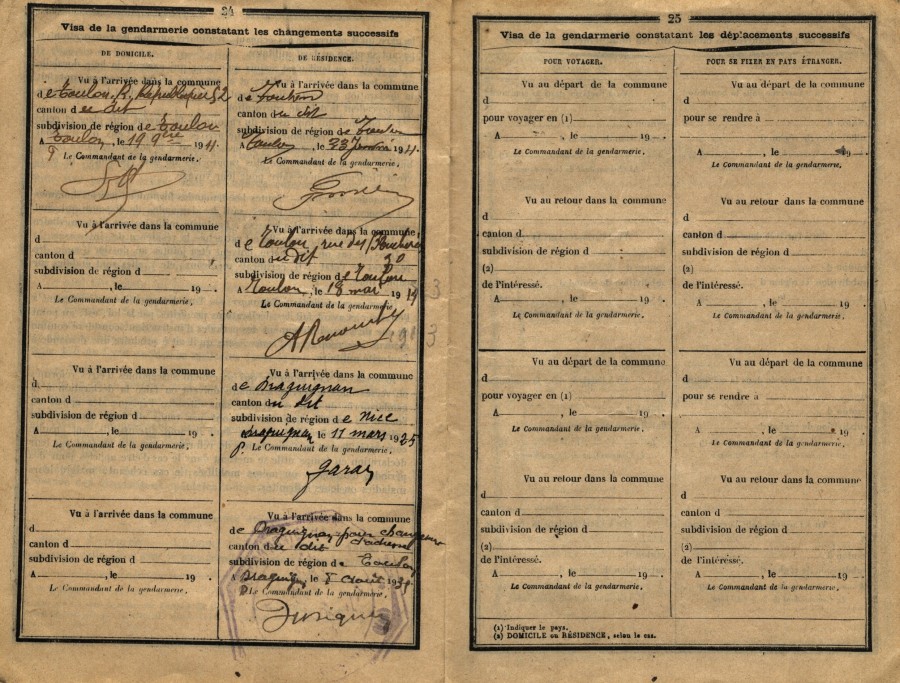 24
Visa de la gendarmerie constatant les changements successifs
DE DOMICILE.
Vu à l'arrivée dans la commune
de Toulon, R. République 52
canton du dit
subdivision de région de Toulon
A Toulon, le 19 9bre 1911.
Le Commandant de la gendarmerie.
Vu à l'arrivée dans la commune
d
canton d
subdivision de région d
A , le 19 .
Le Commandant de la gendarmerie.
Vu à l'arrivée dans la commune
d
canton d
subdivision de région d
A , le 19 .
Le Commandant de la gendarmerie.
Vu à l'arrivée dans la commune
d
canton d
subdivision de région d
A , le 19 .
Le Commandant de la gendarmerie.
DE RÉSIDENCE.
Vu à l'arrivée dans la commune
de Toulon
canton du dit
subdivision de région de Toulon
A Toulon, le 23 1911.
Le Commandant de la gendarmerie.
Vu à l'arrivée dans la commune
de Toulon, rue des
canton du dit
subdivision de région de Toulon
A Toulon, le 18 mai 19
Le Commandant de la gendarmerie.
Vu à l'arrivée dans la commune
de Draguignan
canton du dit
subdivision de région de Nice
Draguignan le 11 mars 1935
Le Commandant de la gendarmerie.
Garay
Vu à l'arrivée dans la commune
de Draguignan pour changement
canton du dit d'adresse
subdivision de région de Toulon
A Draguignan, le 8 août 193
Le Commandant de la gendarmerie.
25
Visa de la gendarmerie constatant les déplacements successifs
POUR VOYAGER.
Vu au départ de la commune
d
pour voyager en (1)
A , le 19 .
Le Commandant de la gendarmerie.
Vu au retour dans la commune
d
canton d
subdivision de région d
(2)
de l'intéressé.
A , le 19 .
Le Commandant de la gendarmerie.
Vu au départ de la commune
d
pour voyager en (1)
A , le 19 .
Le Commandant de la gendarmerie.
Vu au retour dans la commune
d
canton d
subdivision de région d
(2)
de l'intéressé.
A , le 19 .
Le Commandant de la gendarmerie.
(1) Indiquer le pays.
(2) DOMICILE ou RÉSIDENCE, selon le cas.
POUR SE FIXER EN PAYS ÉTRANGER.
Vu au départ de la commune
d
pour se rendre à
A , le 19 .
Le Commandant de la gendarmerie.
Vu au retour dans la commune
d
canton d
subdivision de région d
(2)
de l'intéressé.
A , le 19 .
Le Commandant de la gendarmerie.
Vu au départ de la commune
d
pour se rendre à
A , le 19 .
Le Commandant de la gendarmerie.
Vu au retour dans la commune
d
canton d
subdivision de région d
(2)
de l'intéressé.
A , le 19 .
Le Commandant de la gendarmerie.